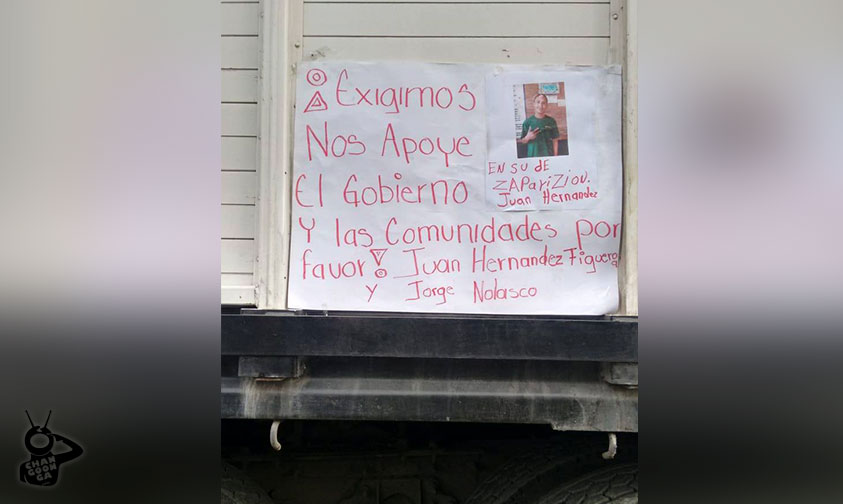 ¡Exigimos
Nos Apoye
El Gobierno
Y las Comunidades por
favor! Juan Hernandez Figueroa
Y Jorge Nolasco
EN SU dE
ZAPariZioN.
Juan Hernandez
CHAN
GOON
GA